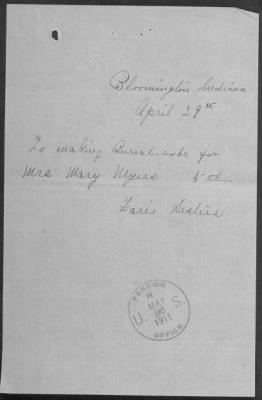 Bloomington Indiana
April 29th
To making Burial robe for
Mrs Mary Myers 5.00
Faris Sisters
PENSION OFFICE
U. S.
N
MAY
1911